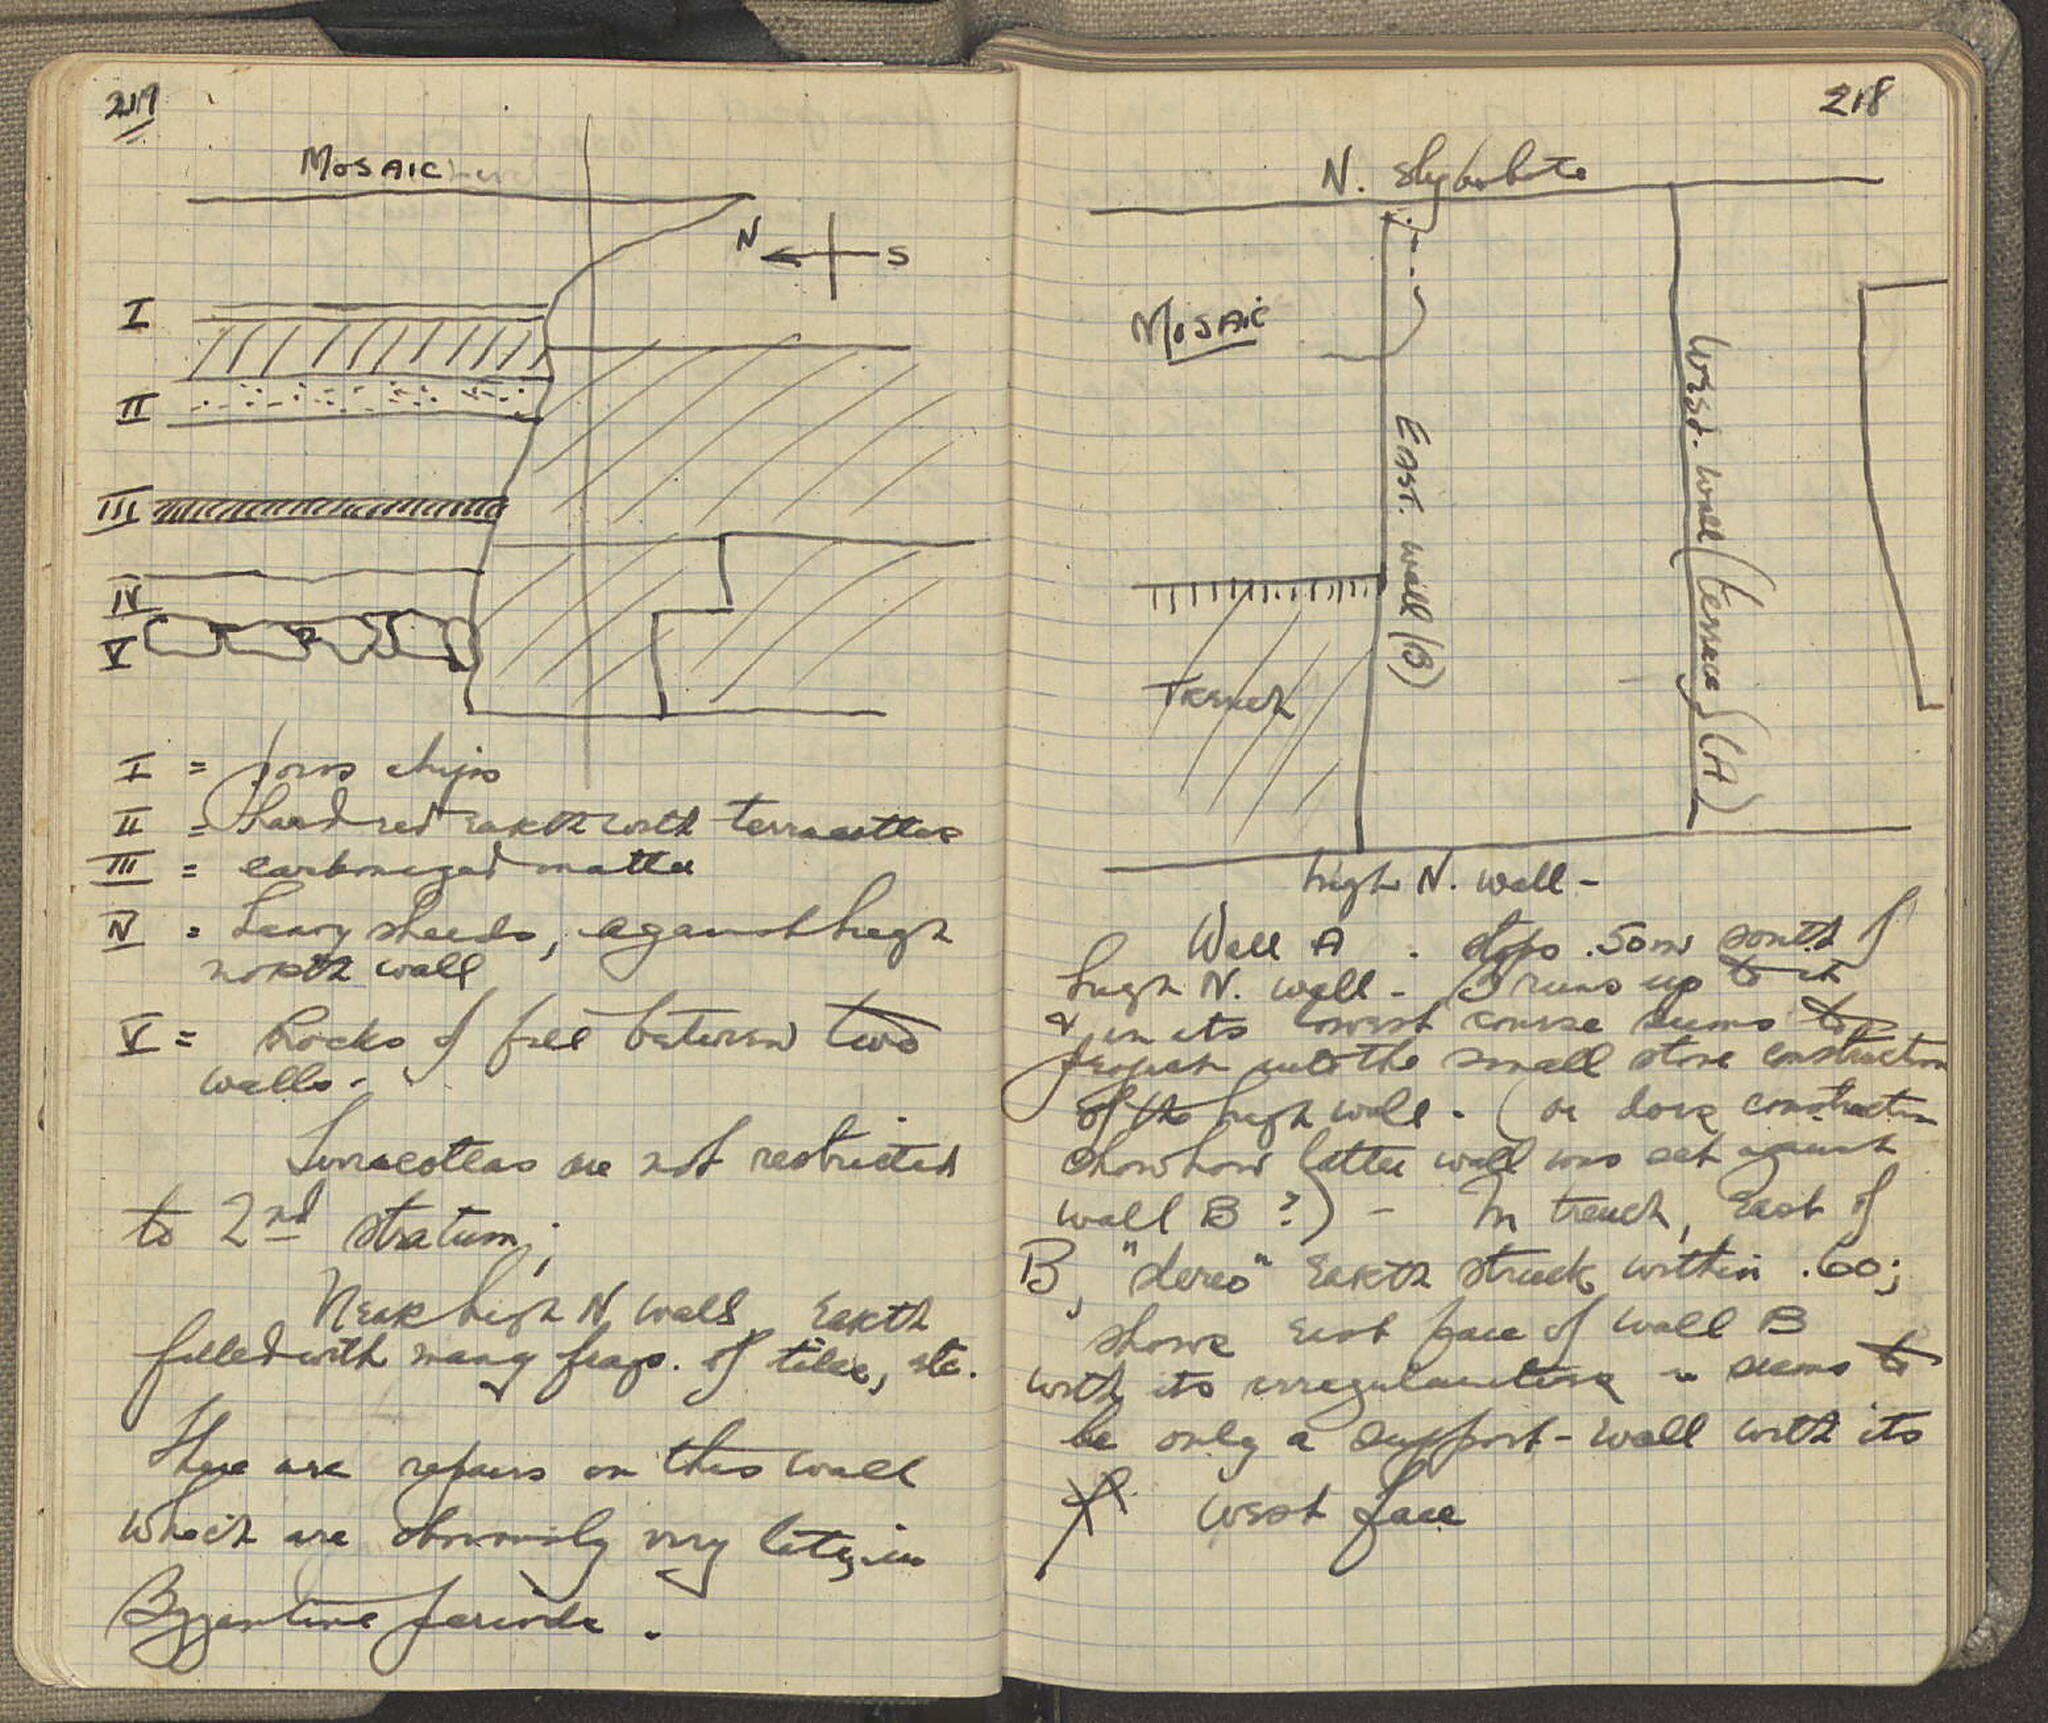 217
MOSAIC
N
S
I
II
III
IV
V
I = poros chips
II = hard red earth with terracottas
III = carbonized matter
IV = heavy sherds, against high
north wall
V = Rocks of fill between two
walls.
Terracottas are not restricted
to 2nd stratum;
Near high N. wall, earth
filled with many frags. of tiles, etc.
There are repairs on this wall
which are obviously very late, in
Byzantine periods.
218
N. stylobate
MOSAIC
East. wall (B)
West. wall (terrace) (A)
Trench
high N. wall -
Wall A . stops .50m south of
high N. wall - B runs up to it
& in its lowest course seems to
project into the small stone construction
of the high wall - ( or does construction
show how latter wall was set against
wall B ?) - In trench, East of
B, "stereo" earth struck within .60;
shows east face of wall B
with its irregularities & seems to
be only a support-wall with its
west face